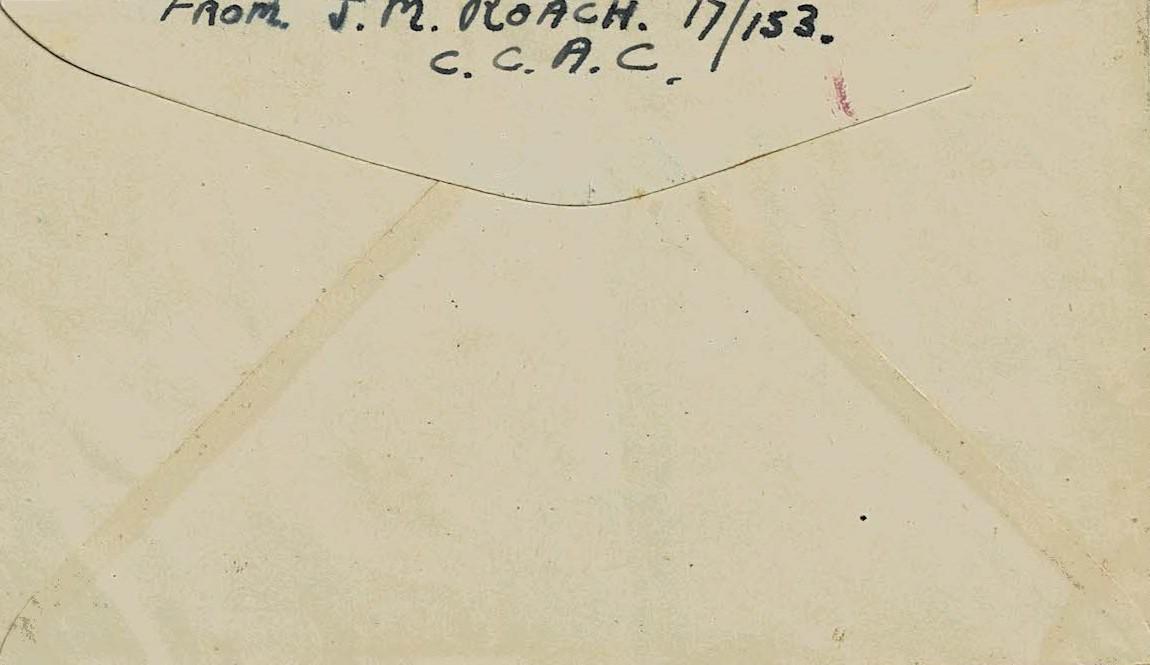 FROM. J. M. ROACH. 17/153.
C. C. A. C.